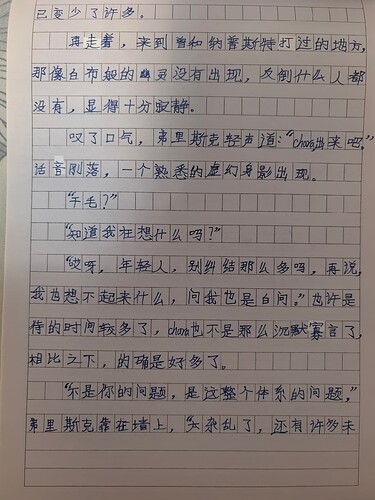 已变少了许多。
再走着，来到曾和纳普斯特打过的地方，
那像白布般的幽灵没有出现，反倒什么人都
没有，显得十分寂静。
叹了口气，弗里斯克轻声道：“chara出来吧。”
话音刚落，一个熟悉的虚幻身影出现。
“干毛？”
“知道我在想什么吗？”
“哎呀，年轻人，别纠结那么多吗，再说，
我也想不起来什么，问我也是白问。”也许是
待的时间较多了，chara也不是那么沉默寡言了，
相比之下，的确是好多了。
“不是你的问题，是这整个体系的问题，”
弗里斯克靠在墙上，“太杂乱了，还有许多未